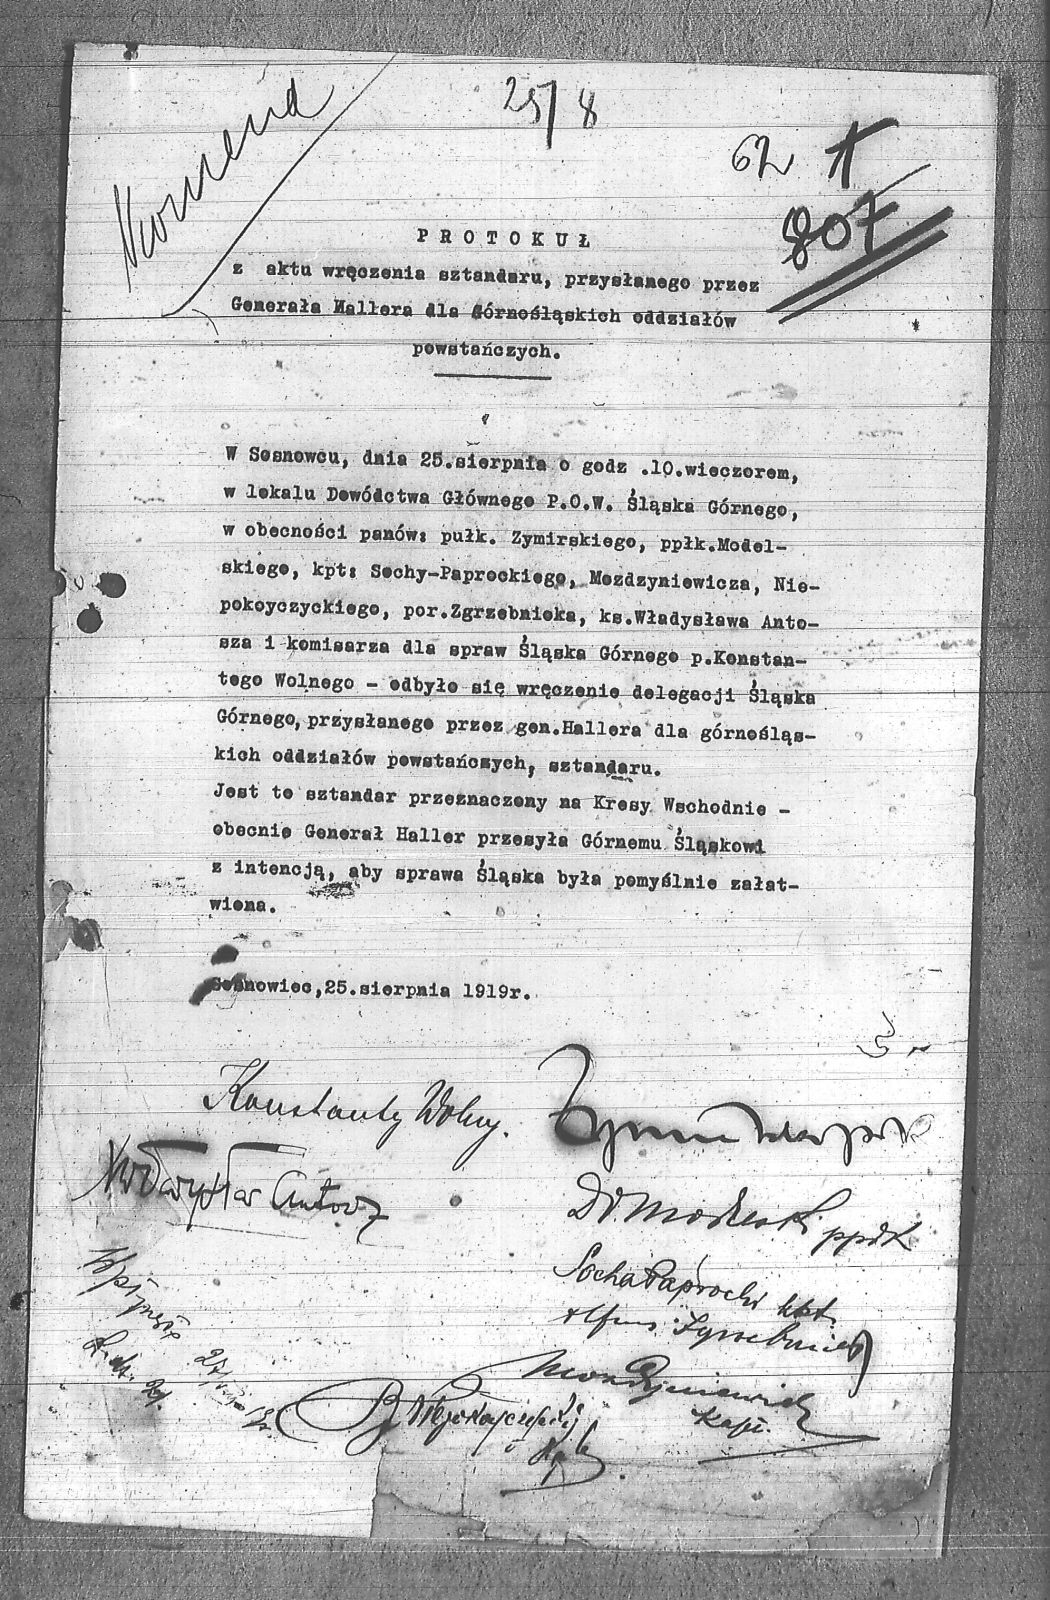 25/8
62
807
PROTOKUŁ
z aktu wręczenia sztandaru, przysłanego przez
Generała Hallera dla Górnośląskich oddziałów
powstańczych.
W Sosnowcu, dnia 25.sierpnia o godz .10.wieczorem,
w lokalu Dowództwa Głównego P.O.W. Śląska Górnego,
w obecności panów: pułk. Zymirskiego, ppłk.Model-
skiego, kpt: Sochy-Paprockiego, Mozdzyniewicza, Nie-
pokoyczyckiego, por.Zgrzebnioka, ks.Władysława Anto-
sza i komisarza dla spraw Śląska Górnego p.Konstan-
tego Wolnego - odbyło się wręczenie delegacji Śląska
Górnego, przysłanego przez gen.Hallera dla górnoślą-
skich oddziałów powstańczych, sztandaru.
Jest to sztandar przeznaczony na Kresy Wschodnie -
obecnie Generał Haller przesyła Górnemu Śląskowi
z intencją, aby sprawa Śląska była pomyślnie załat-
wiona.
Sosnowiec,25.sierpnia 1919r.
Konstanty Wolny.
Władysław Antosz
Dr. Modelski ppłk
Socha Paprocki kpt.
Alfons Zgrzebniok
Mozdzyniewicz
Kapt.